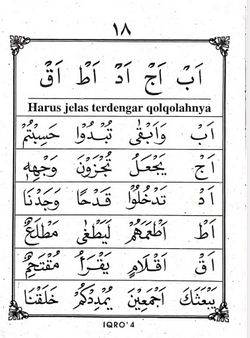 ١٨
اَبْ اَجْ اَدْ اَطْ اَقْ
Harus jelas terdengar qolqolahnya
اَبْ وَاَبْقٰى تُبْدُوْا حَسِبْتُمْ
اَجْ يَجْعَلُ تُجْزَوْنَ وَجْهِهٖ
اَدْ تَدْخُلُوْا قَدْحًا وَجَدْنَا
اَطْ اَطْعَمَهُمْ لَيَطْغٰى مَطْلَعِ
اَقْ اَقْلَامٌ يَقْرَأُ مُقْتَحِمٌ
يَبْعَثَكَ اَجْمَعِيْنَ يُمْدِدْكُمْ خَلَقْنَا
IQRO' 4